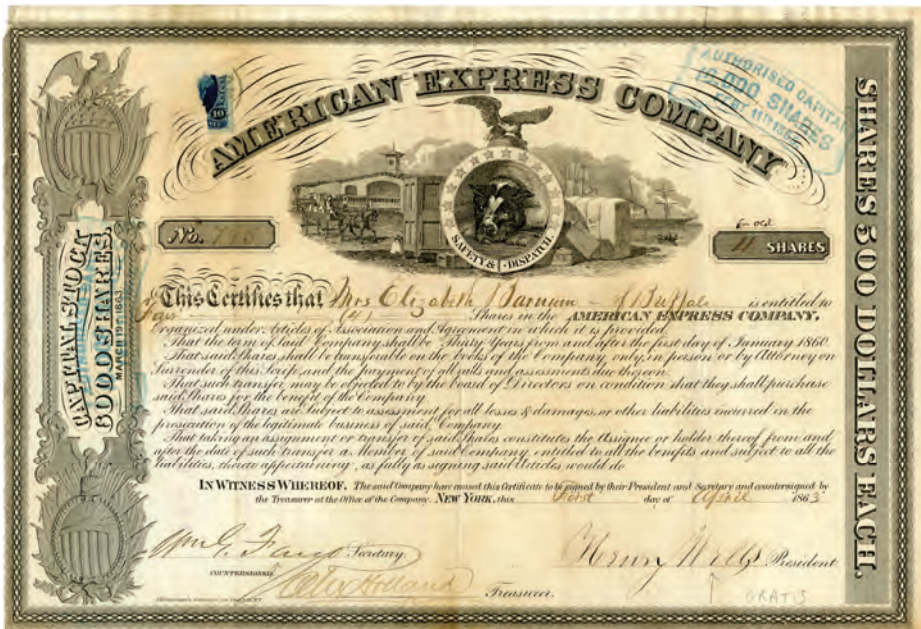 AMERICAN EXPRESS COMPANY
AUTHORISED CAPITAL
SHARES
10
No.
SAFETY & DISPATCH
4 SHARES
CAPITAL STOCK
SHARES.
MARCH 19th 1863
SHARES 500 DOLLARS EACH.
This Certifies that Mrs Elizabeth Barnum of Buffalo is entitled to
Four (4) Shares in the AMERICAN EXPRESS COMPANY,
Organized under Articles of Association and Agreement in which it is provided,
That the term of said Company shall be Thirty Years from and after the first day of January 1860.
That said Shares shall be transferable on the books of the Company only, in person or by Attorney on
Surrender of this Scrip, and the payment of all calls and assessments due thereon.
That such transfer may be objected to by the board of Directors on condition that they shall purchase
said Shares for the benefit of the Company.
That said Shares are Subject to assessment for all losses & damages, or other liabilities incurred in the
prosecution of the legitimate business of said Company.
That taking an assignment or transfer of said Shares constitutes the Assignee or holder thereof, from and
after the date of such transfer a Member of said Company, entitled to all the benefits and subject to all the
liabilities, thereto appertaining, as fully as signing said Articles would do.
IN WITNESS WHEREOF, The said Company have caused this Certificate to be signed by their President and Secretary and countersigned by
the Treasurer at the Office of the Company, NEW YORK, this First day of April 1863
Wm G. Fargo Secretary.
Henry Wells President
COUNTERSIGNED
Alex Holland
Treasurer.
GRATIS